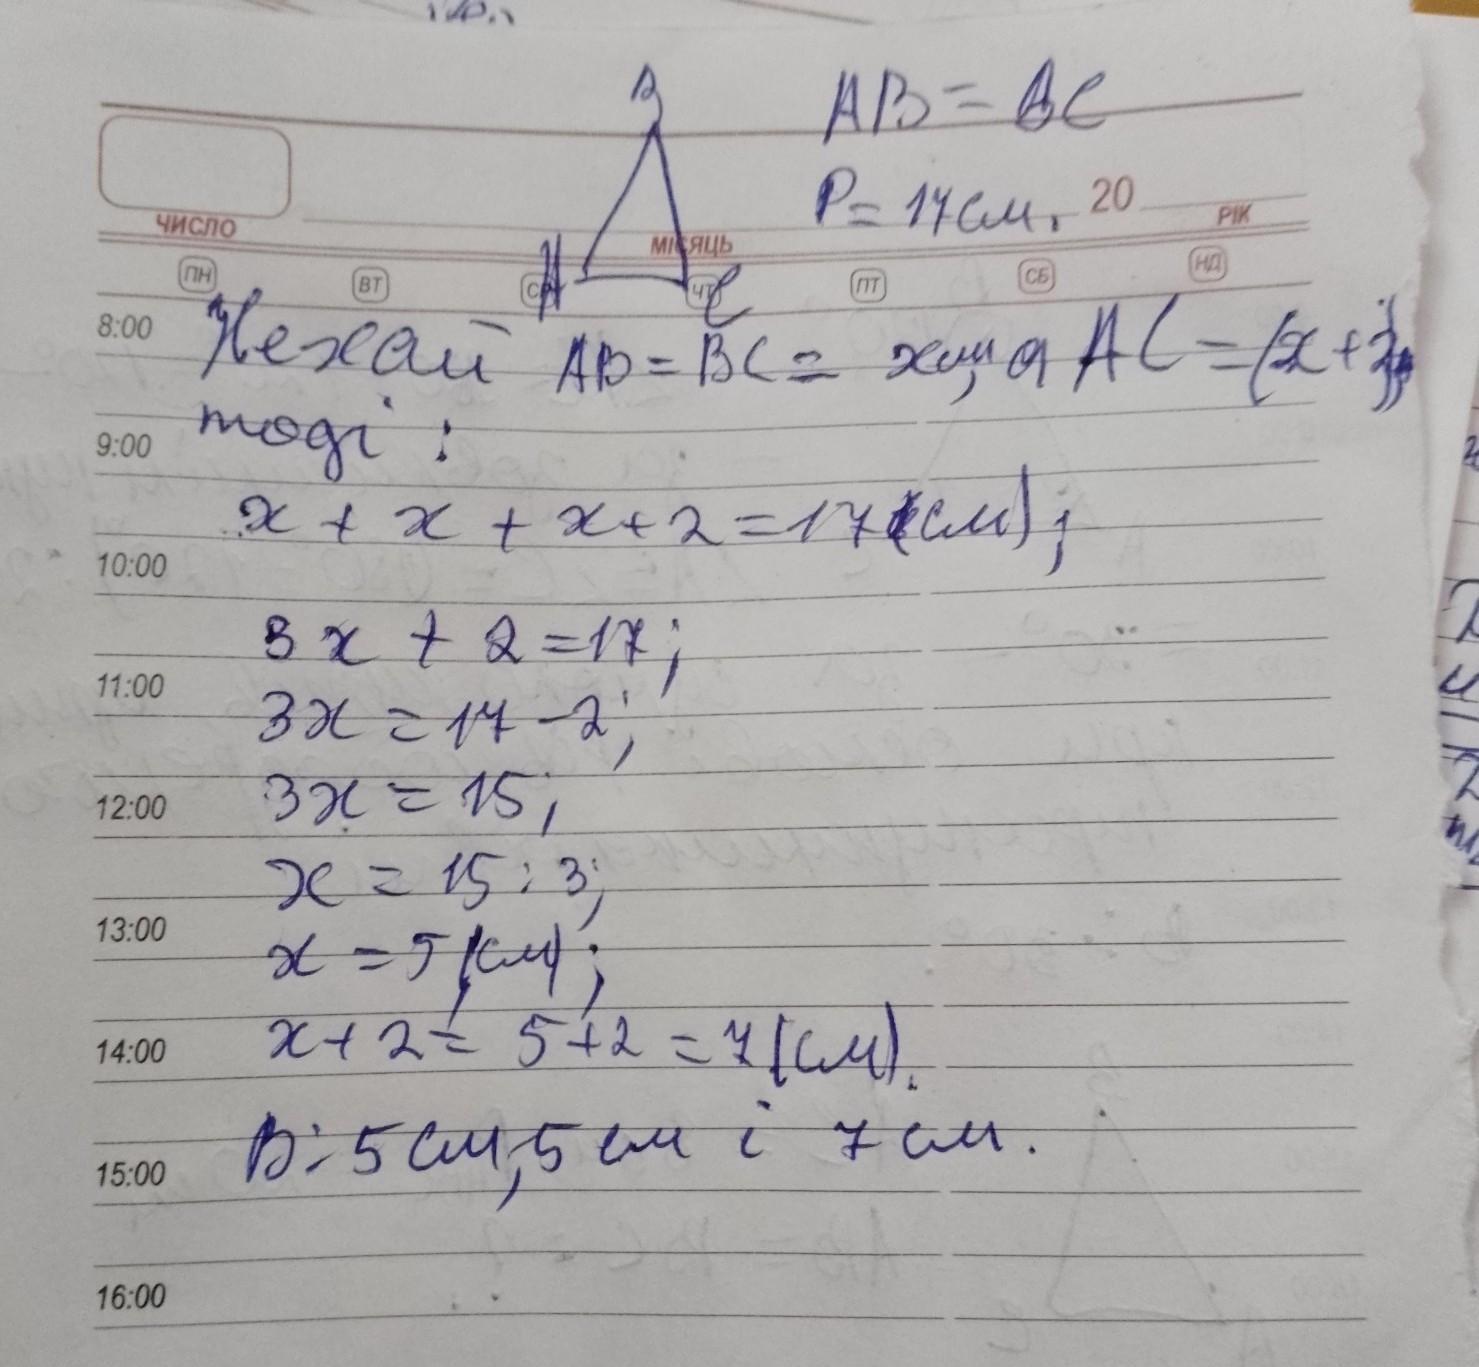 В
AB = BC
P = 17 см.
20
РІК
ЧИСЛО
МІСЯЦЬ
ПН ВТ ЧТ ПТ СБ НД
А С
8:00 Нехай AB = BC = x см, а AC = (x + 2),
9:00 тоді:
x + x + x + 2 = 17 (см);
10:00
3x + 2 = 17;
11:00
3x = 17 - 2;
12:00 3x = 15;
x = 15 : 3;
13:00
x = 5 (см);
14:00 x + 2 = 5 + 2 = 7 (см).
15:00 В: 5 см, 5 см і 7 см.
16:00